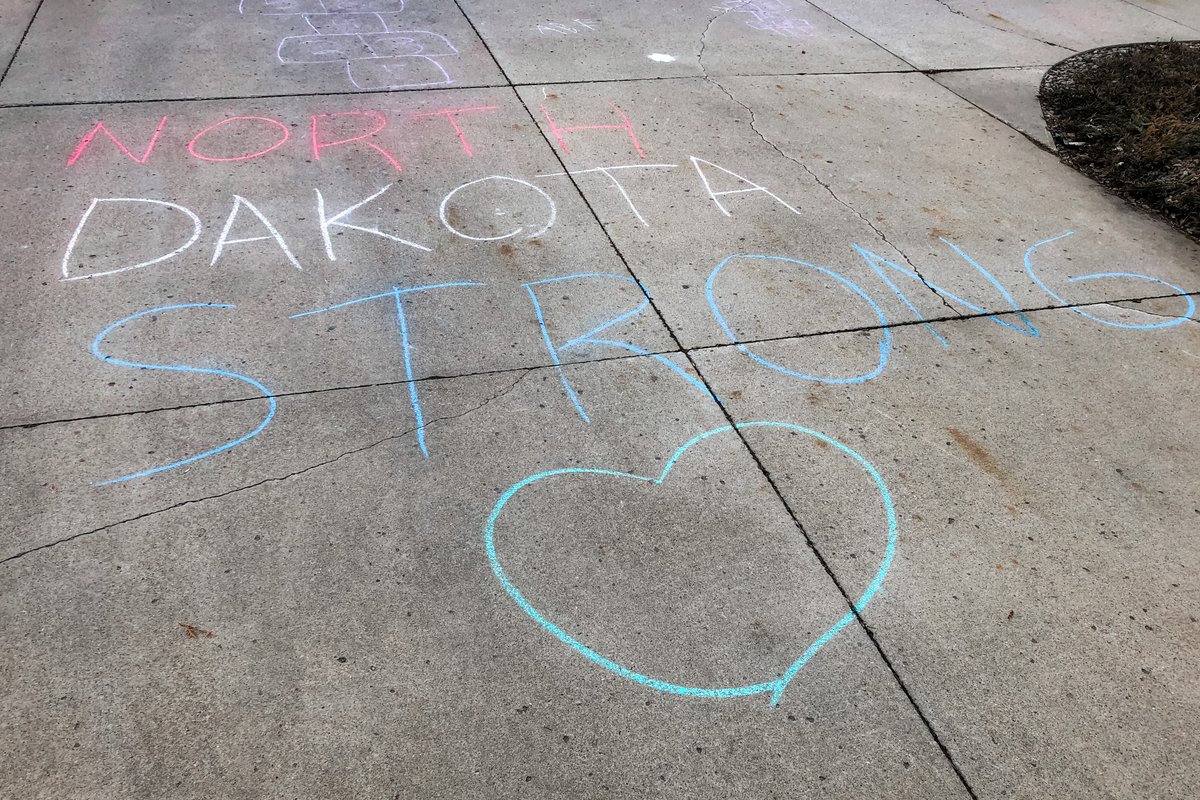 NORTH
DAKOTA
STRONG